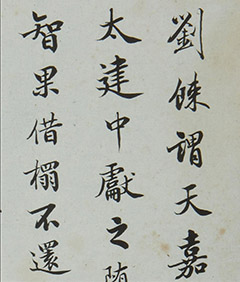 劉餗謂天嘉
太建中獻之隋
智果借搨不還